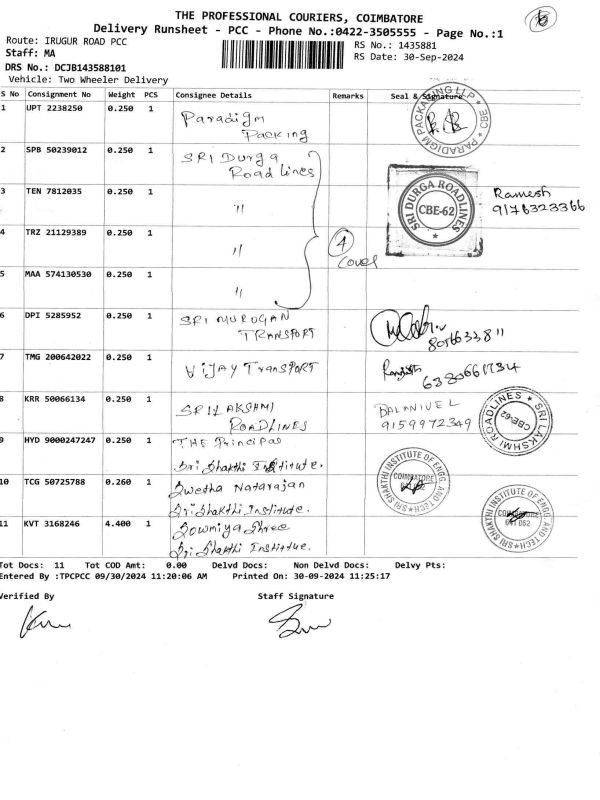 THE PROFESSIONAL COURIERS, COIMBATORE
Delivery Runsheet - PCC - Phone No.:0422-3505555 - Page No.:1
Route: IRUGUR ROAD PCC
RS No.: 1435881
Staff: MA
RS Date: 30-Sep-2024
DRS No.: DCJB143588101
Vehicle: Two Wheeler Delivery
S No Consignment No Weight PCS Consignee Details Remarks Seal & Signature
1 UPT 2238250 0.250 1 Paradigm
Packing
PARADIGM PACKAGING LLP CBE
2 SPB 50239012 0.250 1 SRI Durga
Road lines
SRI DURGA ROADLINES
CBE-62
3 TEN 7812035 0.250 1 "
Ramesh
9176323366
4 TRZ 21129389 0.250 1 "
4
Cover
5 MAA 574130530 0.250 1 "
6 DPI 5285952 0.250 1 SRI MURUGAN
TRANSPORT
7 TMG 200642022 0.250 1 VIJAY TranSPORT
8 KRR 50066134 0.250 1 SRILAKSHMI
ROADLINES
9159972349
SRI LAKSHMI ROADLINES
CBE-62
9 HYD 9000247247 0.250 1 THE Principal
Sri Shakthi Institute.
10 TCG 50725788 0.260 1 Swetha Natarajan
Sri Shakthi Institute.
SRI SHAKTHI INSTITUTE OF ENGG AND TECH
COIMBATORE
11 KVT 3168246 4.400 1 Sowmiya Shree
Sri Shakthi Institue.
SRI SHAKTHI INSTITUTE OF ENGG AND TECH
641 062
Tot Docs: 11 Tot COD Amt: 0.00 Delvd Docs: Non Delvd Docs: Delvy Pts:
Entered By :TPCPCC 09/30/2024 11:20:06 AM Printed On: 30-09-2024 11:25:17
Verified By Staff Signature